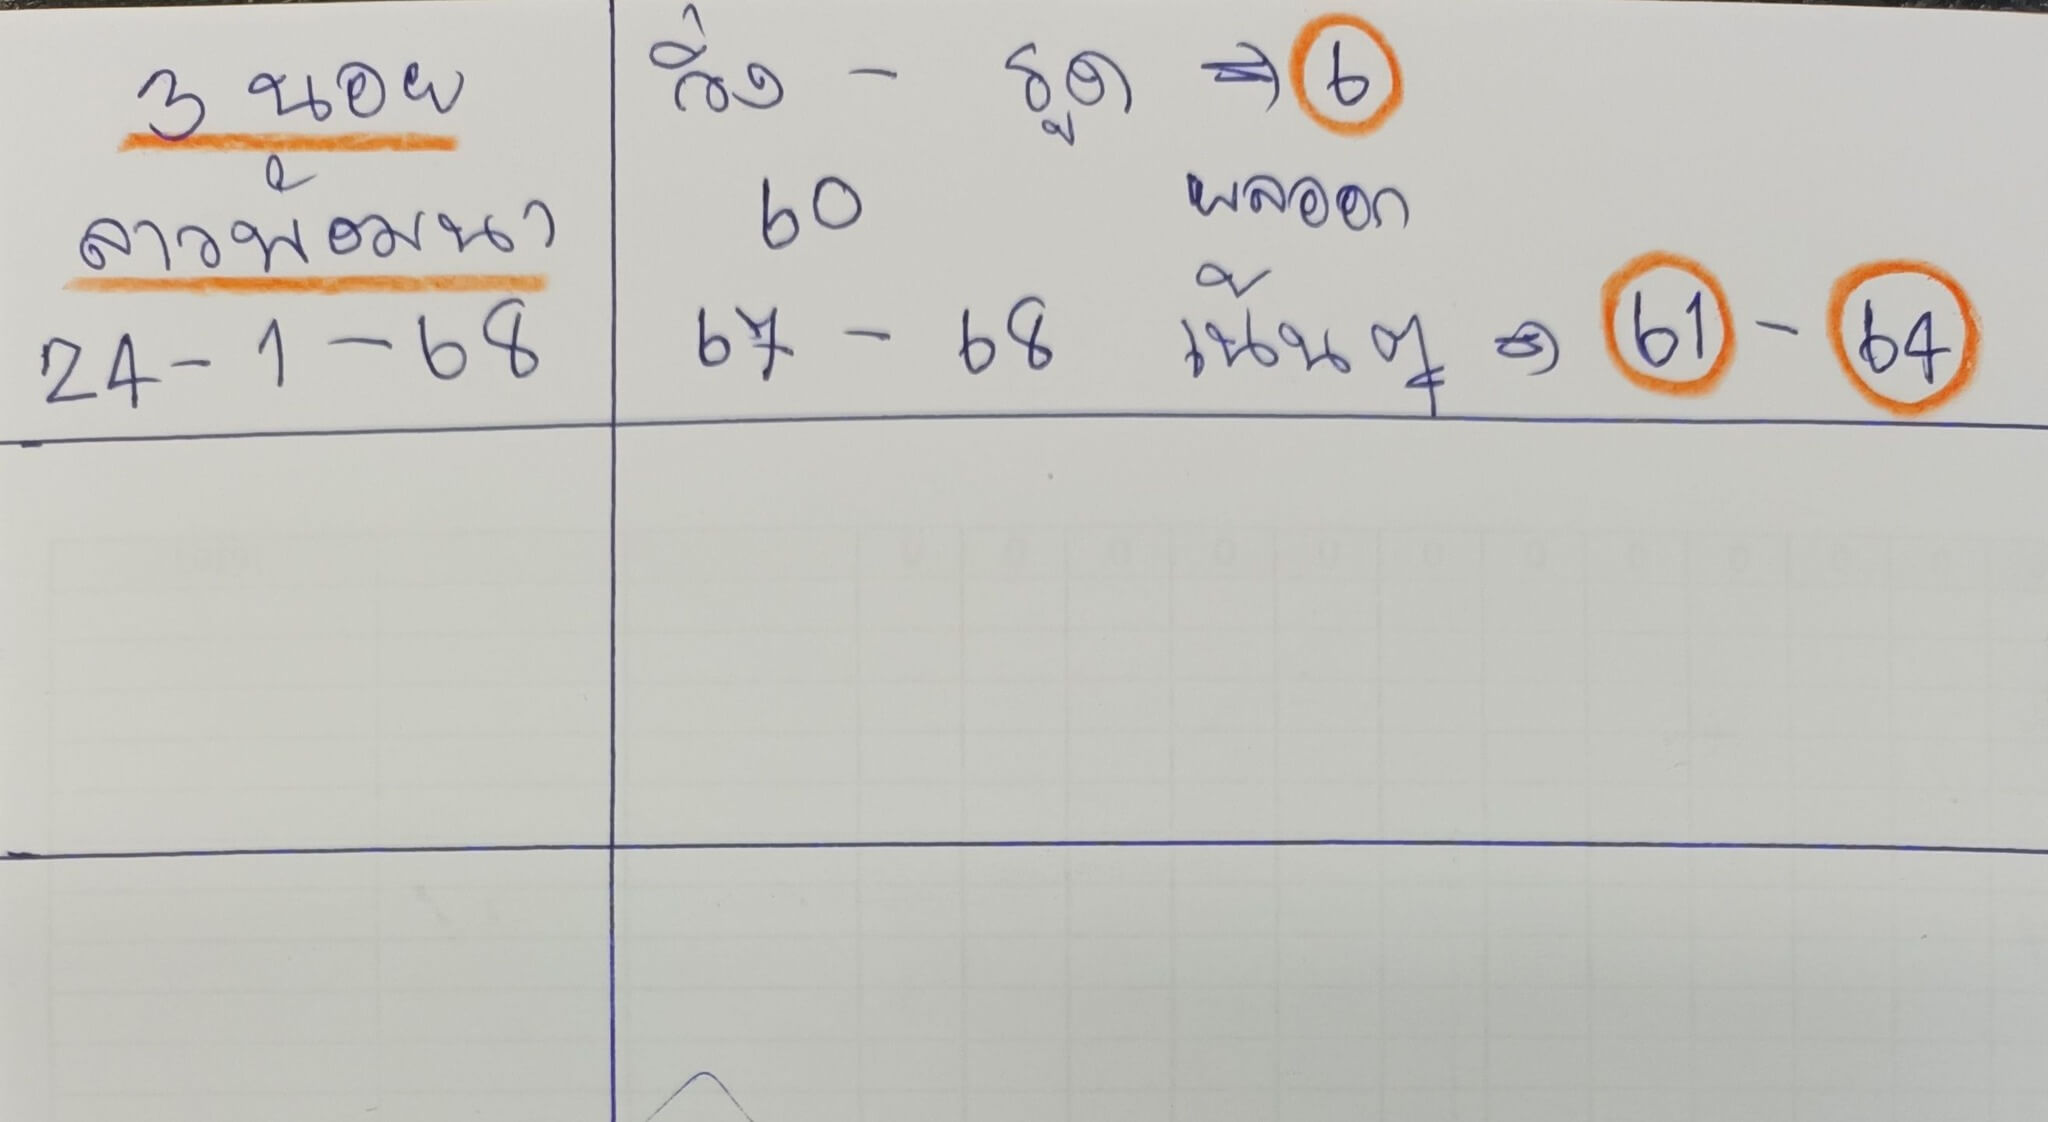 3 นอย
ลาวพ้อมนา
24-1-68
วิ่ง - รูด ⇒ 6
60 ผลออก
67 - 68 เน้นๆ ⇒ 61 - 64